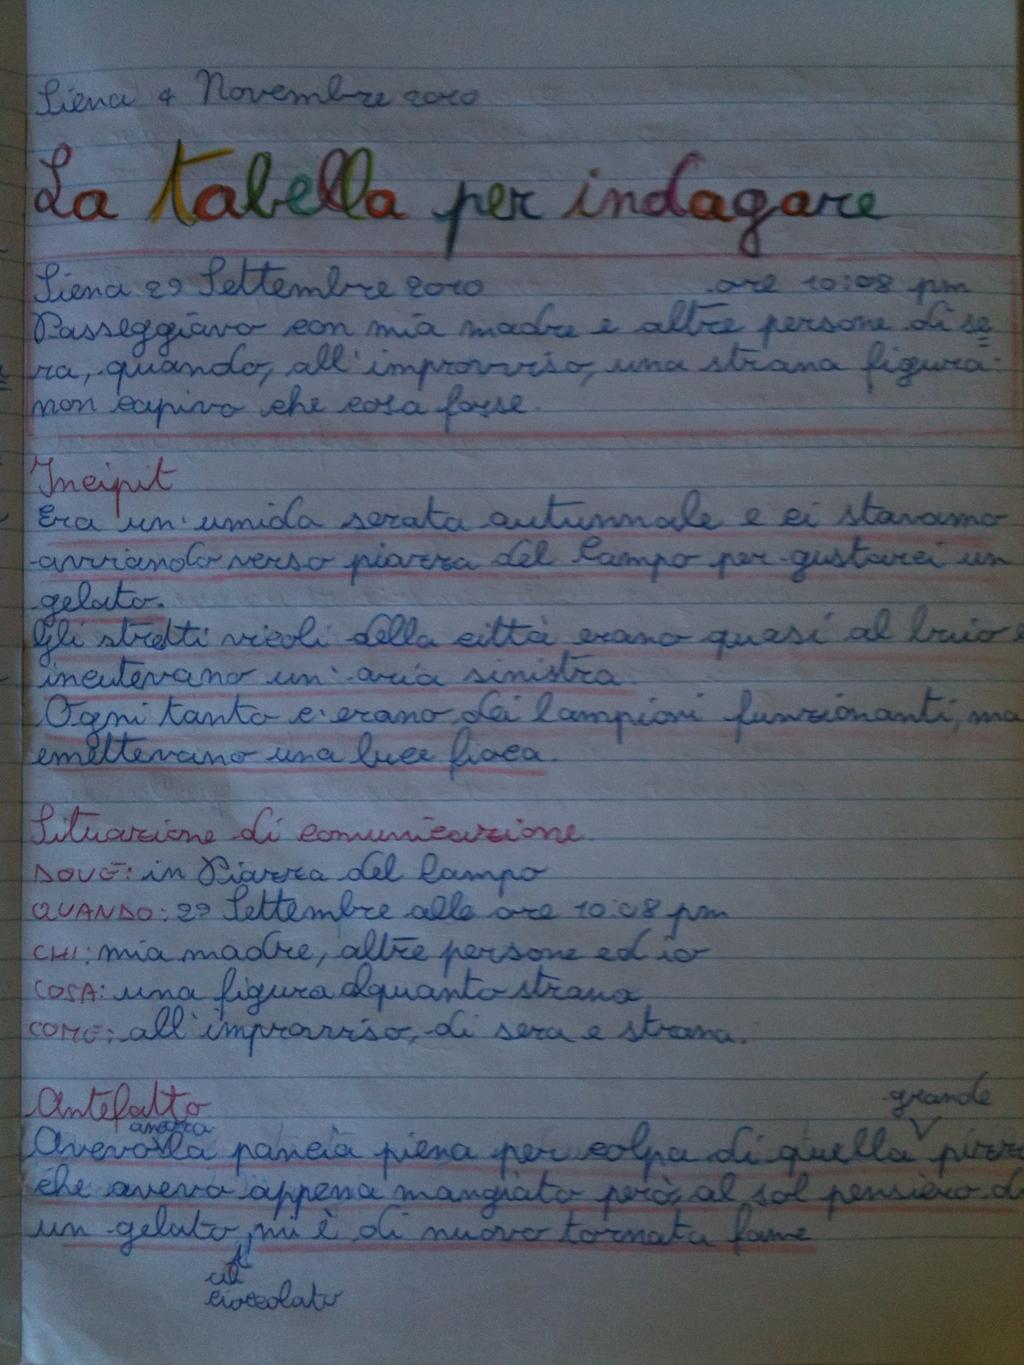 Siena 4 Novembre 2010
La tabella per indagare
Siena 29 Settembre 2010 ore 10:08 pm
Passeggiavo con mia madre e altre persone di se
ra, quando, all'improvviso, una strana figura:
non capivo che cosa fosse.
Incipit
Era un'umida serata autunnale e ci stavamo
avviando verso piazza del Campo per gustarci un
gelato.
Gli stretti vicoli della città erano quasi al buio e
incutevano un'aria sinistra.
Ogni tanto c'erano dei lampioni funzionanti, ma
emettevano una luce fioca.
Situazione di comunicazione
DOVE: in Piazza del Campo
QUANDO: 29 Settembre alle ore 10:08 pm
CHI: mia madre, altre persone ed io
COSA: una figura alquanto strana
COME: all'improvviso, di sera e strana.
Antefatto
grande
ancora
Avevo la pancia piena per colpa di quella pizza
che avevo appena mangiato però, al sol pensiero di
un gelato, mi è di nuovo tornata fame
al
cioccolato